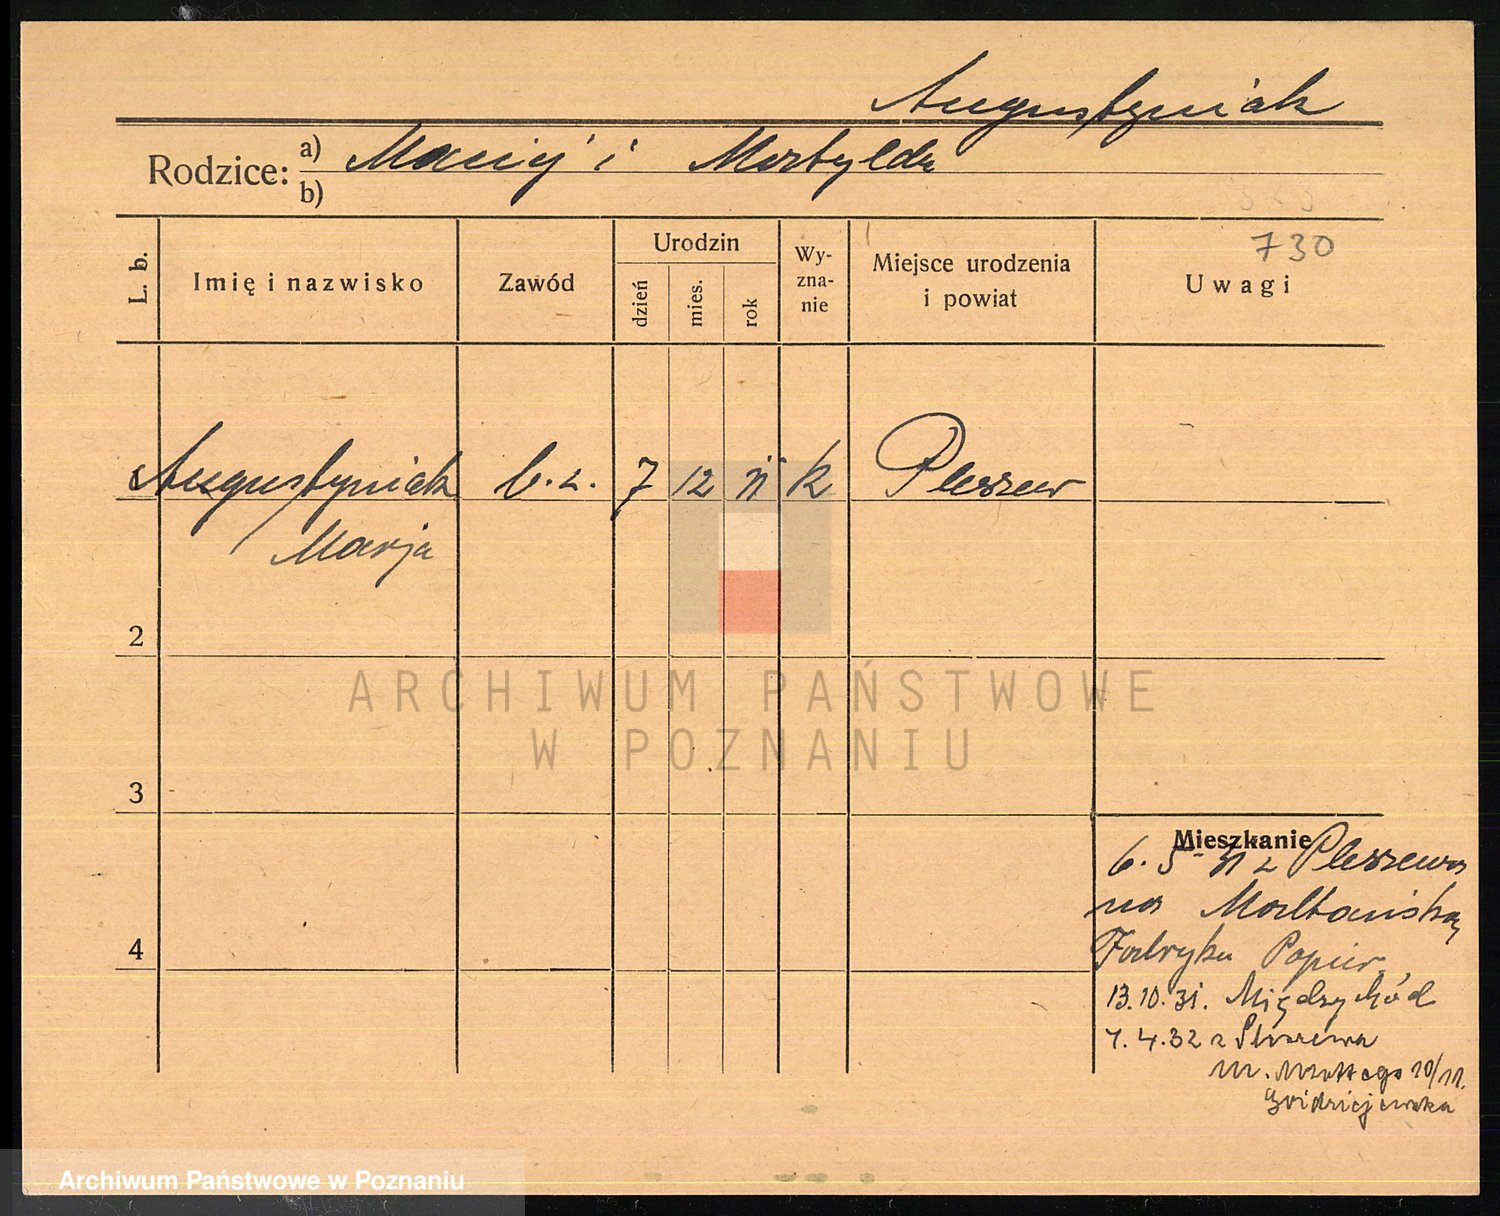 Augustyniak
Rodzice: a) Maciej i Matylda
b)
730
L. b. Imię i nazwisko Zawód Urodzin dzień mies. rok Wy-zna-nie Miejsce urodzenia i powiat Uwagi
Augustyniak b. z. 7 12 11 k Pleszew
Marja
2
3
4
Mieszkanie
6. 5. 31 z Pleszewa
na Maltańską
Fabryka Papier.
13.10.31. Międzychód
7.4.32 z Pleszewa
10/11.
ARCHIWUM PAŃSTWOWE
W POZNANIU
Archiwum Państwowe w Poznaniu